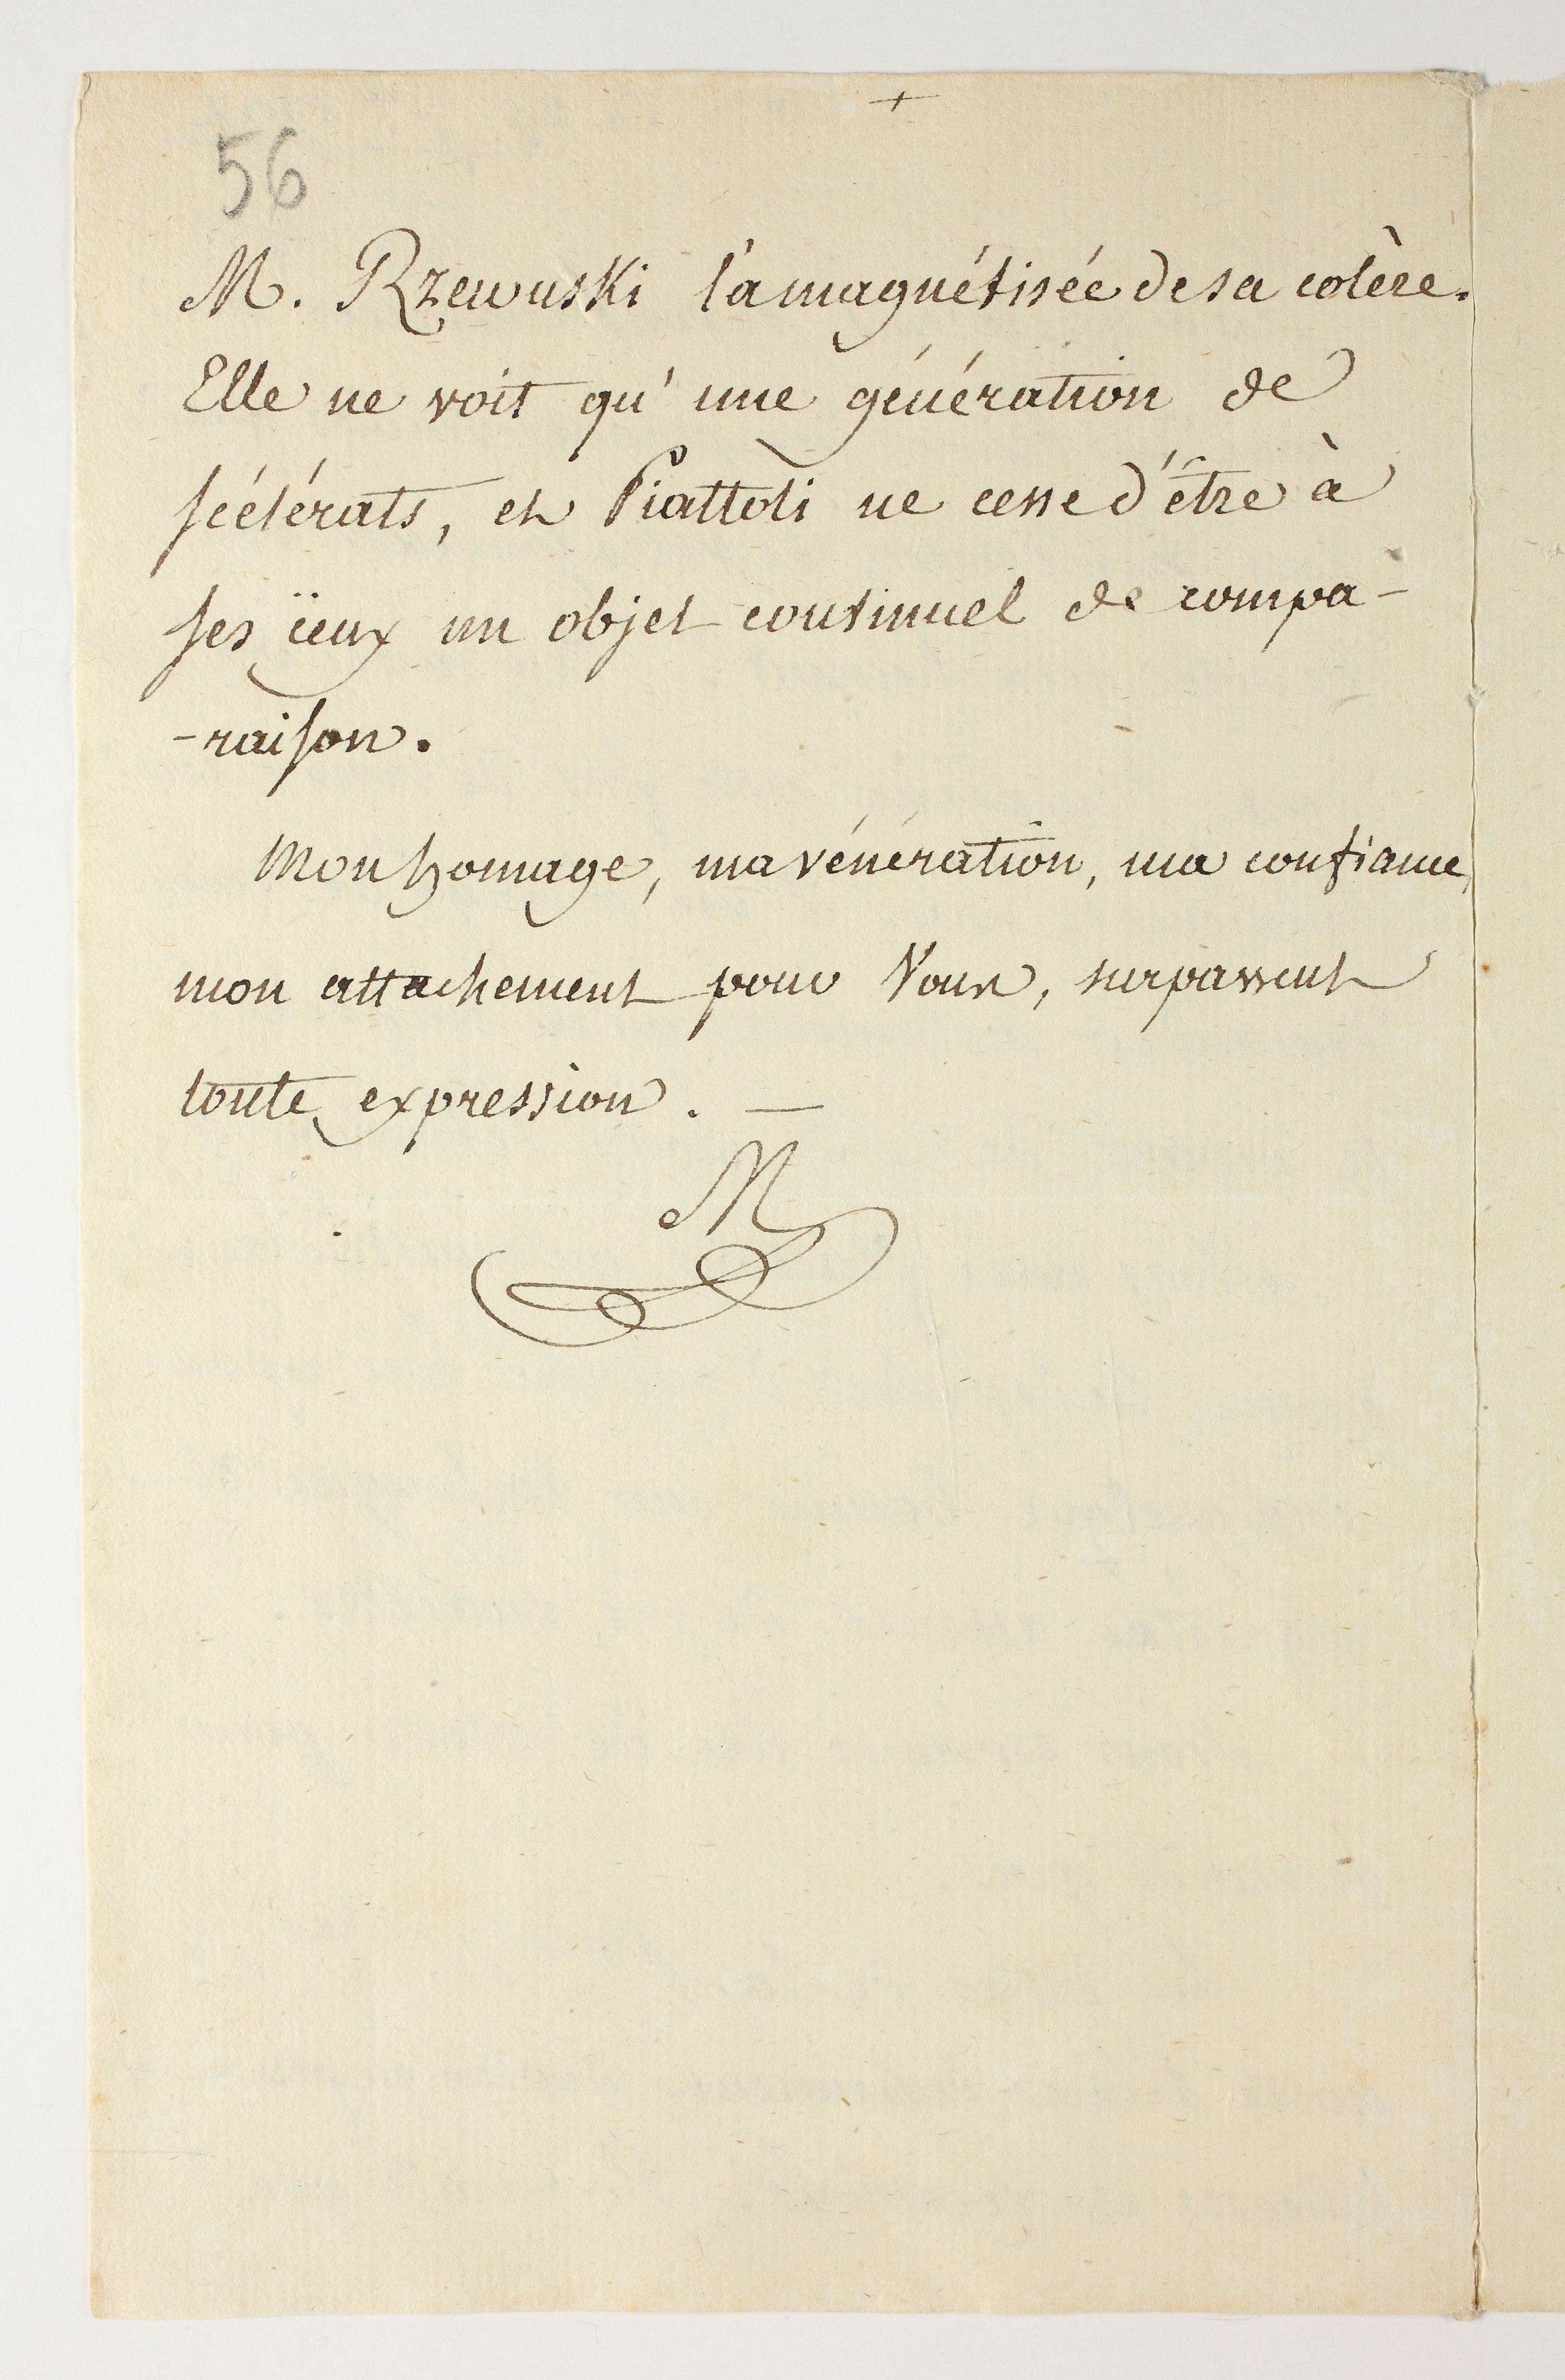 +
56
M. Rzewuski l'a magnétisée de sa colère.
Elle ne voit qu'une génération de
scélérats, et Piattoli ne cesse d'être à
ses ïeux un objet continuel de compa-
-raison.
Mon homage, ma vénération, ma confiance,
mon attachement pour Vous, surpassent
toute expression. —
M